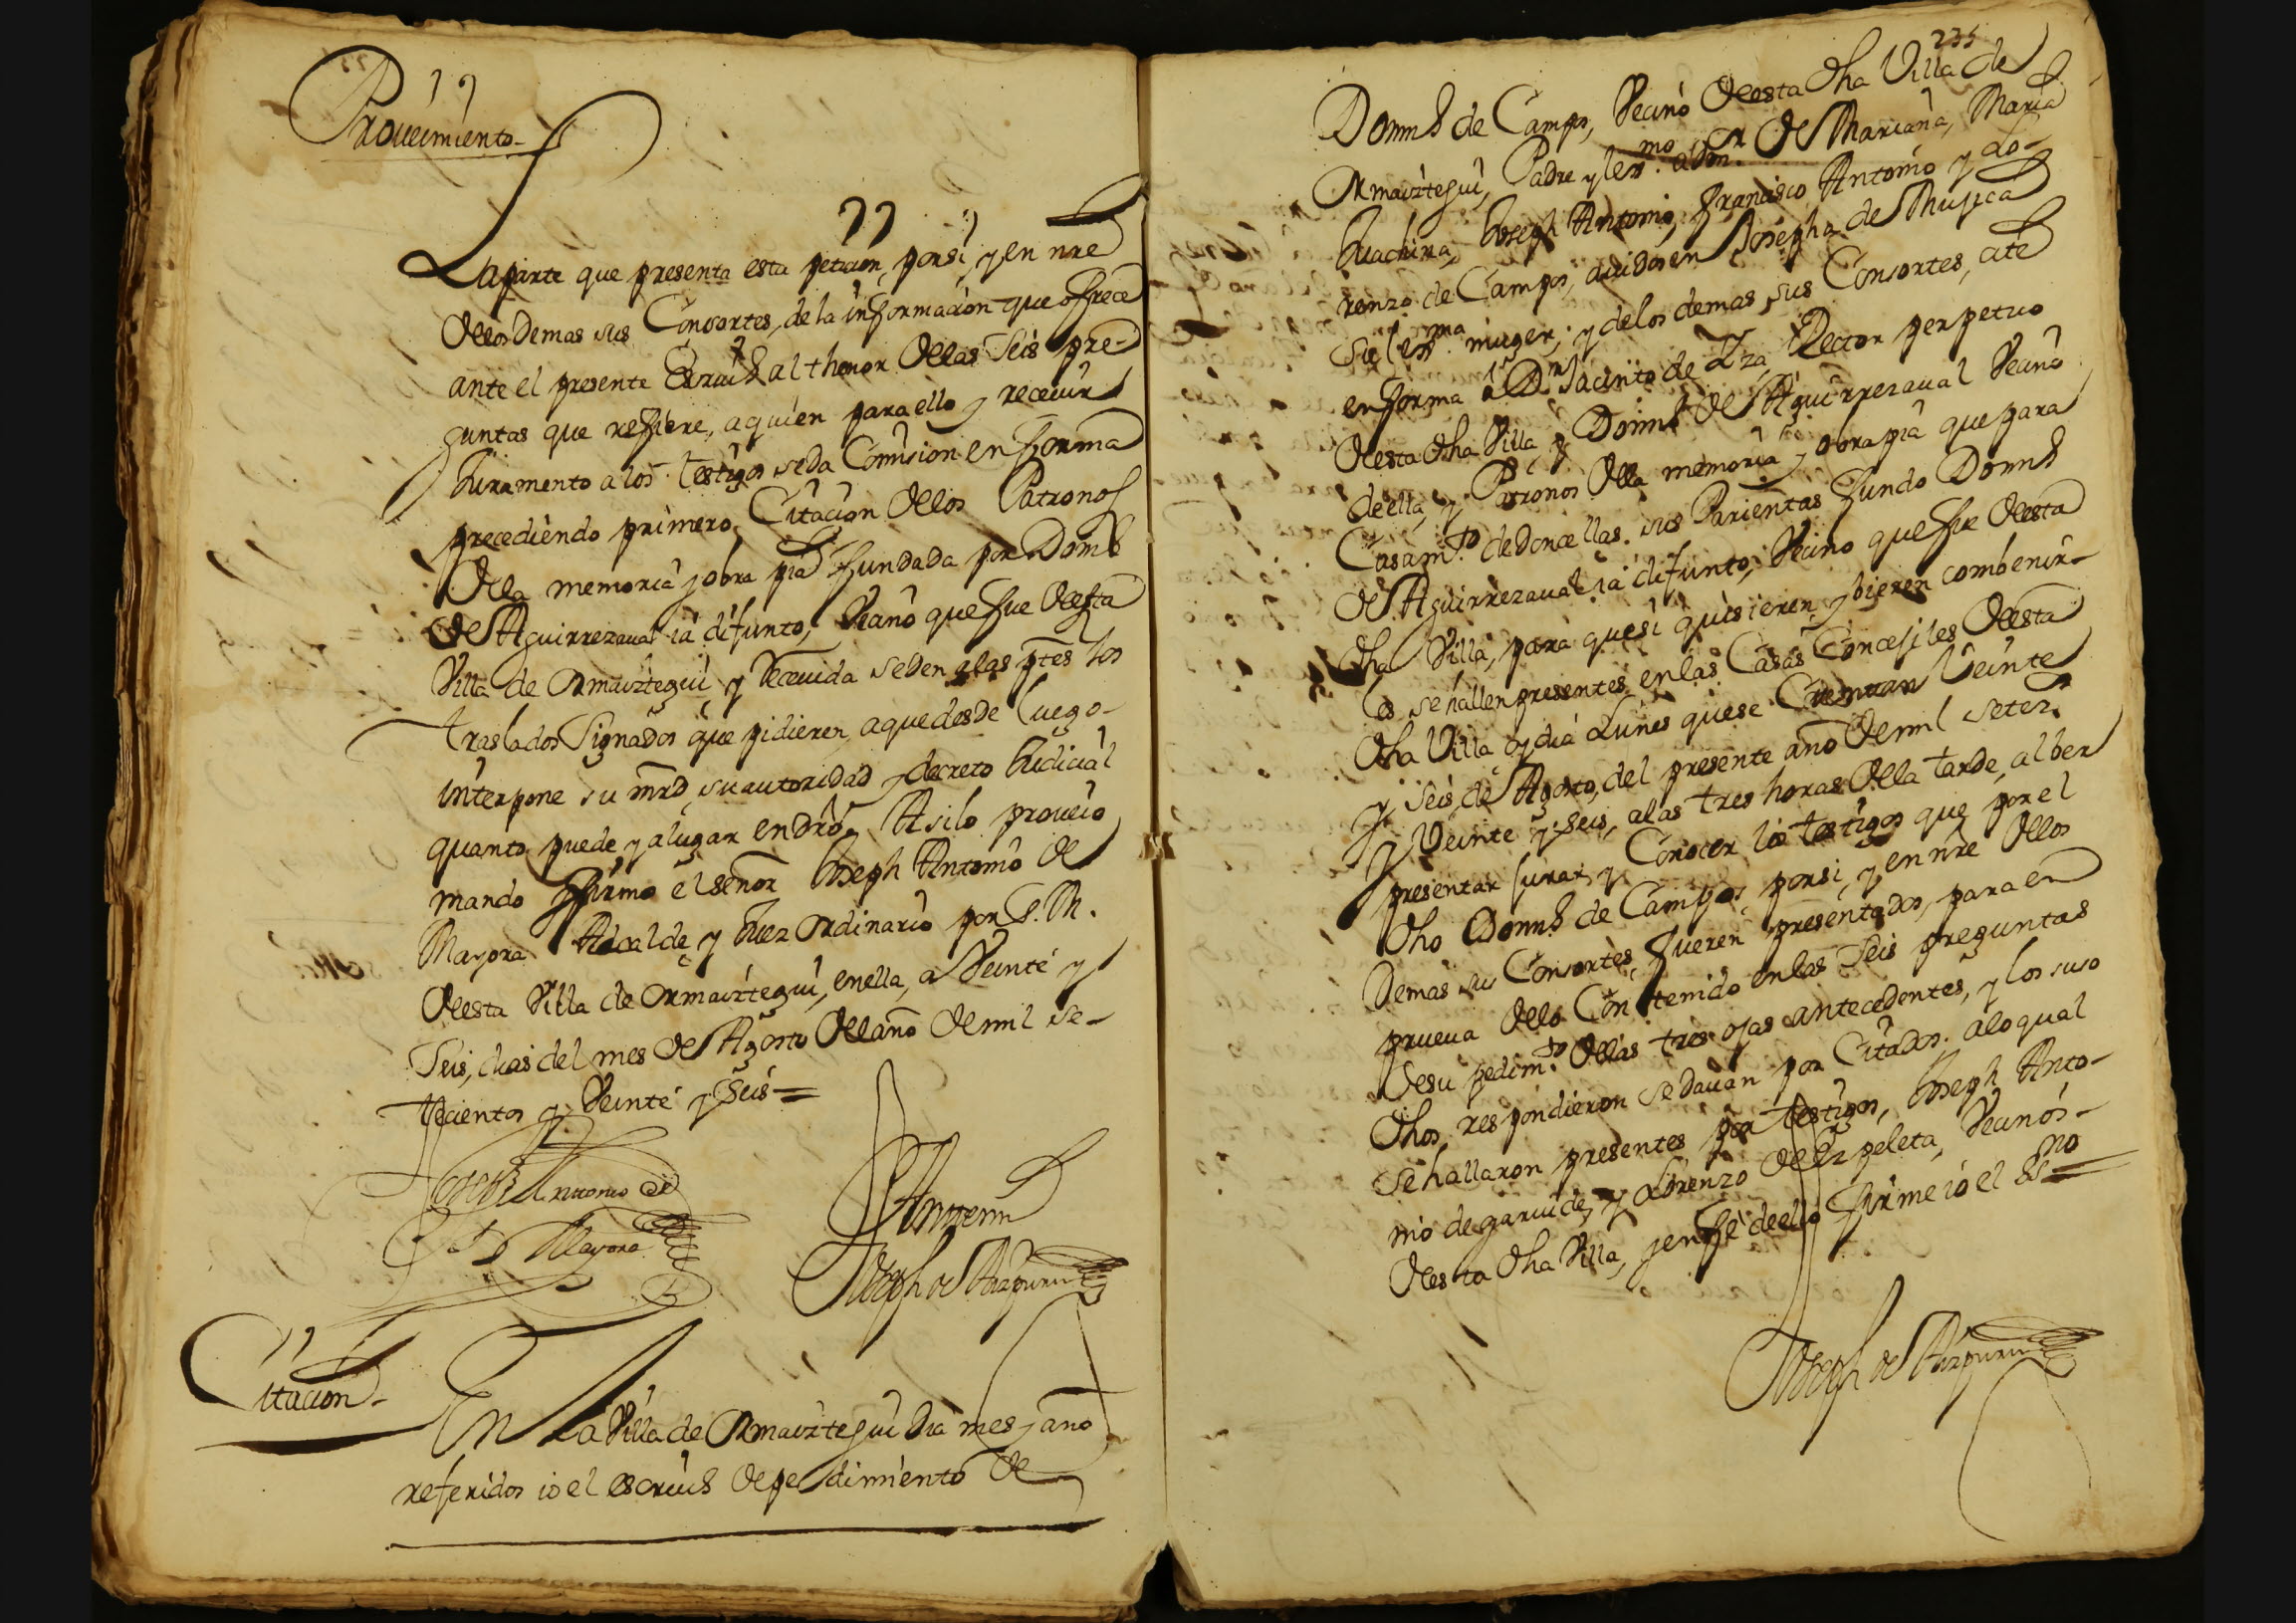 Proueimiento-
La parte que presenta esta peticion, por si, y en nre
de los Demas sus Consortes, de la informacion que ofrece
ante el presente Escriuº al thenor de las seis pre-
guntas que refiere, a quien para ello y receiuir
Juramento a los testigos se da Comision en forma
precediendo primero Citacion de los Patronos
de la memoria y obra pia fundada por Domº
de Aguirrezaual ia difunto, Vecino que fue de esta
Villa de Ormaiztegui y receuida se den a las ptes los
traslados signados que pidieren, a que desde luego-
interpone su mrd, su autoridad y decreto Judicial
quanto puede y a lugar en dro, Asi lo proueio
mando y firmo el señor Joseph Antonio de
Mayora Alcalde y Juez ordinario por S. M.
de esta Villa de Ormaiztegui, en ella, a Veinte y
seis, dias del mes de Agosto del año de mil se-
tecientos y Veinte y seis=
Joseph Antonio de
Mayora
Antemi
Joseph de Aizpuru
Citacion-
En la Villa de Ormaiztegui dia mes y año
referidos io el escriuº de pedimiento de
235
Domº de Campos, Vecino de esta dha Villa de
Ormaiztegui, Padre y lexmo admr de Mariana, Maria
Juachina, Joseph Antonio, Francisco Antonio y Lo-
renzo de Campos, auidos en Josepha de Mujica
su lexma muger; y de los demas sus Consortes, cite
en forma a Dn Jacinto de Lza, Rector perpetuo
de esta dha Villa y Domº de Aguirrezaual Vecino
de ella, y Patronos de la memoria y obra pia que para
Casamto de doncellas sus Parientas fundo Domº
de Aguirrezaual ia difunto, Vecino que fue de esta
dha Villa, para que si quisieren y bieren combenir-
les se hallen presentes en las Casas Concejiles de esta
dha Villa oy dia Lunes que se Cuentan Veinte
y seis de Agosto, del presente año de mil setezs
y Veinte y seis, a las tres horas de la tarde, al ber
presentar jurar y Conocer los testigos que por el
dho Domº de Campos por si, y en nre de los
Demas sus Consortes fueren presentados, para en
prueua de lo Contenido en las seis preguntas
de su pedimto de las tres ojas antecedentes, y los suso
dhos respondieron se dauan por Citados. a lo qual
se hallaron presentes por testigos, Joseph Anto-
nio de garuide, y Lorenzo de Ezpeleta, Vecinos-
de esta dha Villa, y en fe de ello firme io el Esno=
Joseph de Aizpuru